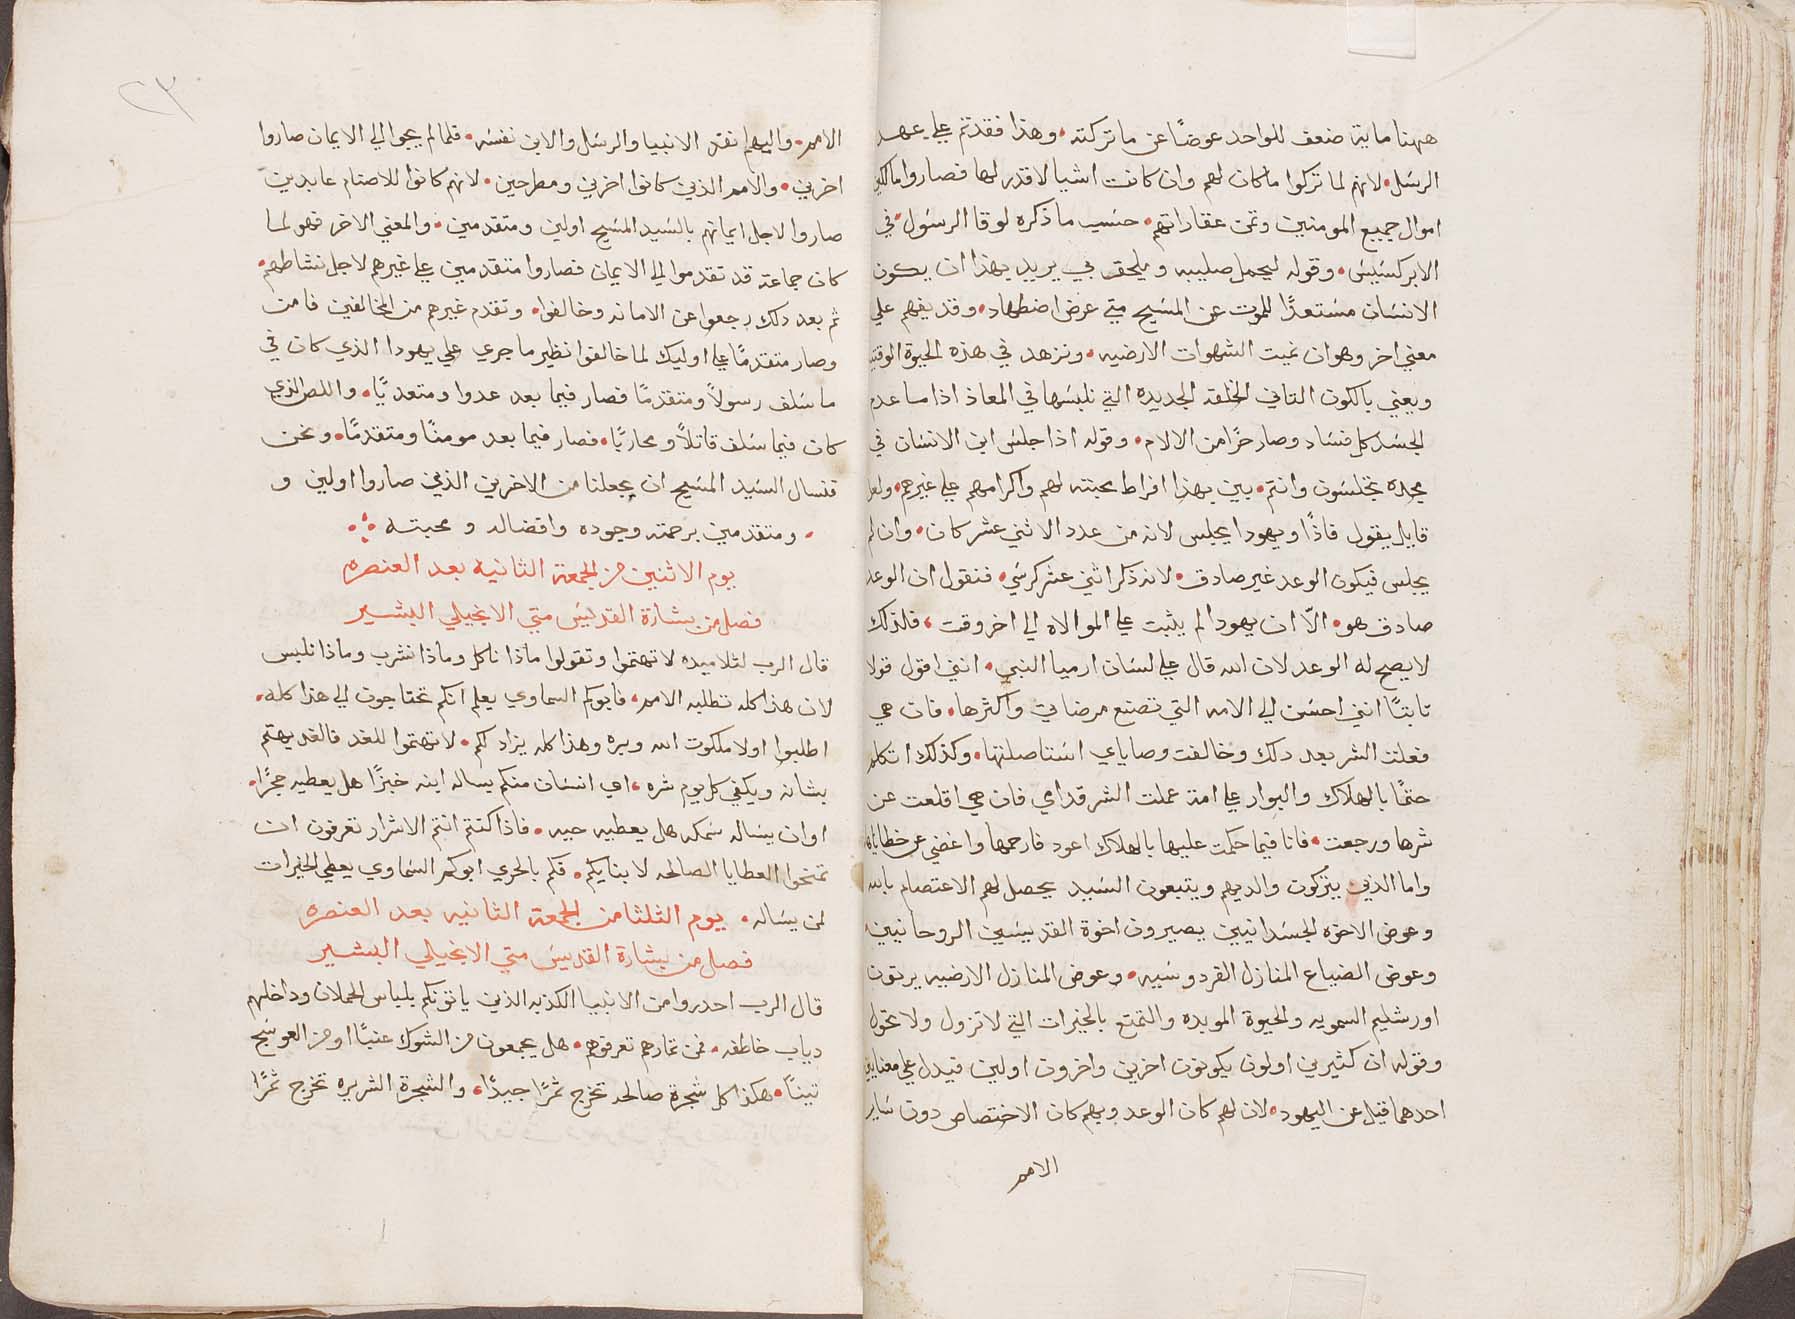 ههنا ماية ضعف للواحد عوضًا عن ما تركته • وهذا فقد تم علي عهد
الرسل • لانهم لما تركوا ما كان لهم وان كانت اشيا لا قدر لها فصاروا مالكين
اموال جميع المومنين وثمن عقاراتهم • حسب ما ذكره لوقا الرسول في
الابركسيس • وقوله ليحمل صليبه ويلحق بي يريد بهذا ان يكون
الانسان مستعدًا للموت عن المسيح متي عرض اضطهاد • وقد يفهم علي
معني اخر وهو ان نميت الشهوات الارضيه • ونزهد في هذه الحيوة الوقتيه
ويعني بالكون الثاني الخلقه الجديده التي نلبسها في المعاد اذا ما عدم
الجسد كل فساد وصار حرًا من الالام • وقوله اذا جلس ابن الانسان في
مجده تجلسون وانتم • بين بهذا افراط محبته لهم واكرامهم علي غيرهم • ولعل
قايل يقول فاذًا ويهودا يجلس لانه من عدد الاثني عشر كان • وان لم
يجلس فيكون الوعد غير صادق • لانه ذكر اثني عشر كرسي • فنقول ان الوعد
صادق هو • الّا ان يهودا لم يثبت علي الموالاه الي اخر وقت • فلذلك
لا يصح له الوعد لان الله قال علي لسان ارميا النبي • انني اقول قولا
ثابتًا انني احسن الي الامه التي تصنع مرضاتي واكثرها • فان هي
فعلت الشر بعد ذلك وخالفت وصاياي استاصلتها • وكذلك اتكلم
حتمًا بالهلاك والبوار علي امة عملت الشر قدامي فان هي اقلعت عن
شرها ورجعت • فانا فيما حكمت عليها بالهلاك اعود فارحمها واغضي عن خطاياها
واما الذين يتركون والديهم ويتبعون السيد يحصل لهم الاعتصام بالله
وعوض الاخوه الجسدانيين يصيرون اخوة القديسين الروحانيين
وعوض الضياع المنازل الفردوسيه • وعوض المنازل الارضيه يرثون
اورشليم السمويه والحيوة الموبده والتمتع بالخيرات التي لا تزول ولا تحول
وقوله ان كثيرين اولون يكونون اخرين واخرون اولين فيدل علي معنايين
احدهما قيل عن اليهود • لان لهم كان الوعد وبهم كان الاختصاص دون ساير
الامم
٢٣
الامم • واليهم نفد الانبيا والرسل والابن نفسه • فلما لم يجوا الي الايمان صاروا
اخرين • والامم الذين كانوا اخرين ومطرحين • لانهم كانوا للاصنام عابدين
صاروا لاجل ايمانهم بالسيد المسيح اولين ومتقدمين • والمعني الاخر فهو لما
كان جماعة قد تقدموا الي الايمان فصاروا متقدمين علي غيرهم لاجل نشاطهم •
ثم بعد ذلك رجعوا عن الامانه وخالفوا • وتقدم غيرهم من المخالفين فامن
وصار متقدمًا علي اوليك لما خالفوا نظير ما جري علي يهودا الذي كان في
ما سلف رسولاً ومتقدمًا فصار فيما بعد عدوا ومتعديًا • واللص الذي
كان فيما سلف قاتلاً ومحاربًا • فصار فيما بعد مومنًا ومتقدمًا • ونحن
فنسال السيد المسيح ان يجعلنا من الاخرين الذين صاروا اولين و
• ومتقدمين برحمته وجوده وافضاله ومحبته •
يوم الاثنين من الجمعة الثانيه بعد العنصره
فصل من بشارة القديس متي الانجيلي البشير
قال الرب لتلاميده لا تهتموا وتقولوا ماذا ناكل وماذا نشرب وماذا نلبس
لان هذا كله تطلبه الامم • فابوكم السماوي يعلم انكم تحتاجون الي هذا كله •
اطلبوا اولا ملكوت الله وبره وهذا كله يزاد لكم • لا تهتموا للغد فالغد يهتم
بشانه ويكفي كل يوم شره • اي انسان منكم يساله ابنه خبزًا هل يعطيه حجرًا •
او ان يساله سمكه هل يعطيه حيه • فاذا كنتم انتم الاشرار تعرفون ان
تمنحوا العطايا الصالحه لابنايكم • فكم بالحري ابوكم السماوي يعطي الخيرات
لمن يساله • يوم الثلثا من الجمعة الثانيه بعد العنصره
فصل من بشارة القديس متي الانجيلي البشير
قال الرب احدروا من الانبيا الكذبه الذين ياتونكم بلباس الحملان وداخلهم
دياب خاطفه • فمن ثمارهم تعرفوهم • هل يجمعون من الشوك عنبًا او من العوسج
تينًا • هكذا كل شجرة صالحه تخرج ثمرًا جيدًا • والشجرة الشريره تخرج ثمرًا